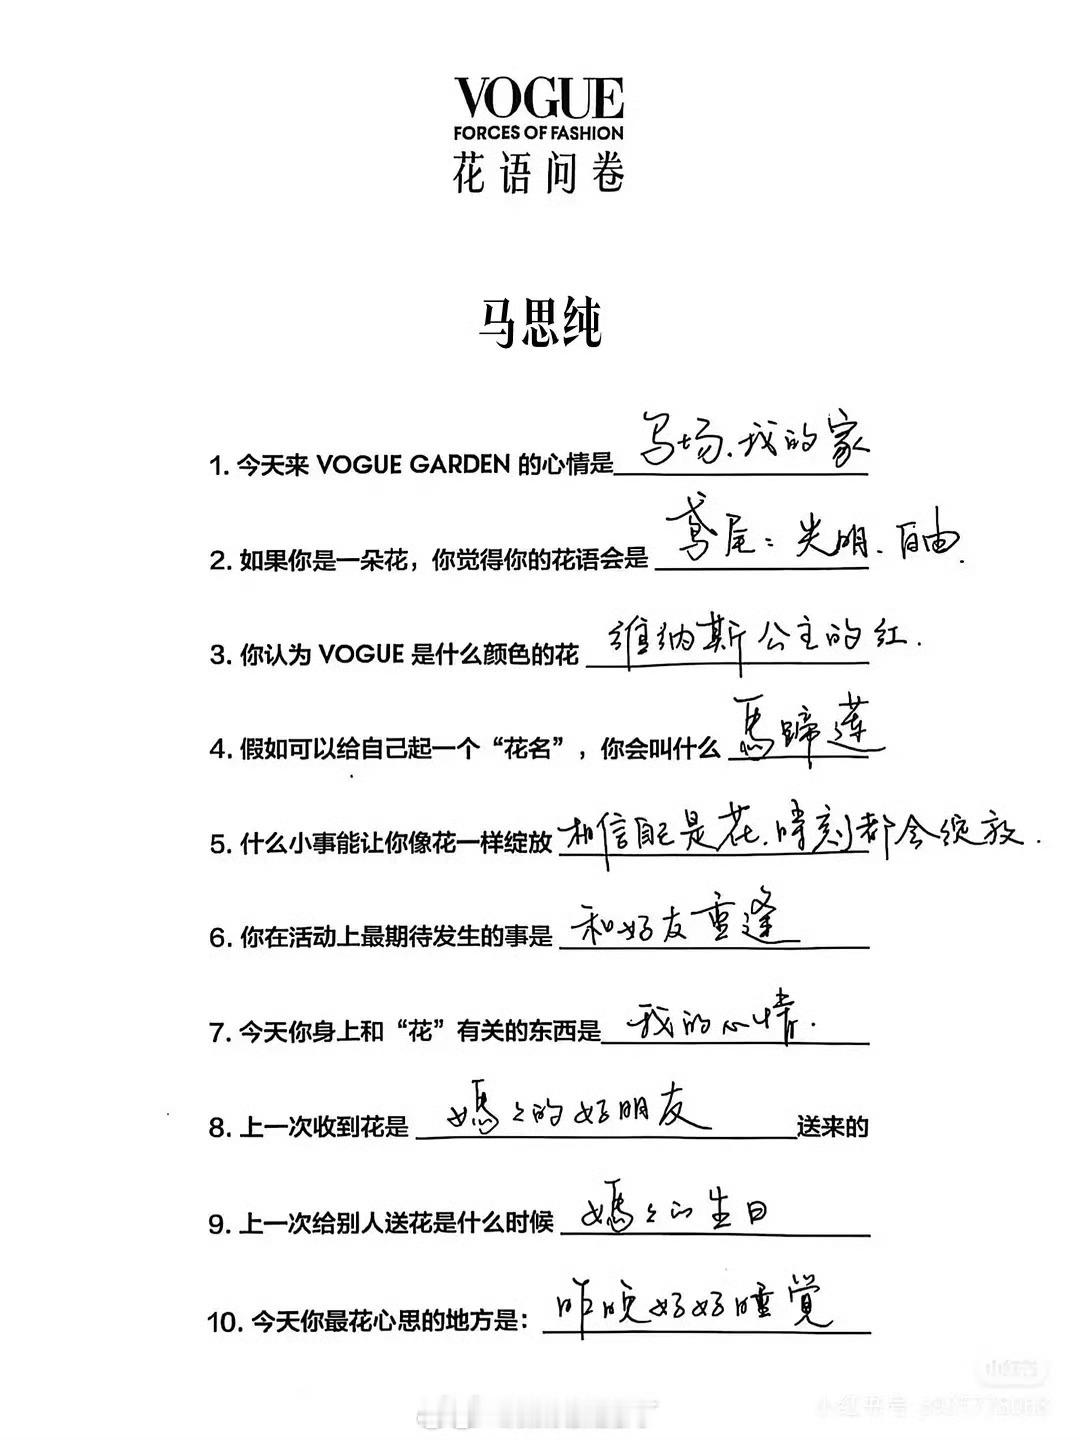 VOGUE
FORCES OF FASHION
花语问卷
马思纯
1. 今天来 VOGUE GARDEN 的心情是 马场、我的家
2. 如果你是一朵花，你觉得你的花语会是 鸢尾：光明、自由.
3. 你认为 VOGUE 是什么颜色的花 维纳斯公主的红.
4. 假如可以给自己起一个“花名”，你会叫什么 馬蹄莲
5. 什么小事能让你像花一样绽放 相信自己是花、時刻都会绽放.
6. 你在活动上最期待发生的事是 和好友重逢
7. 今天你身上和“花”有关的东西是 我的心情.
8. 上一次收到花是 媽々的好朋友 送来的
9. 上一次给别人送花是什么时候 媽々的生日
10. 今天你最花心思的地方是： 昨晚好好睡覺
小红书